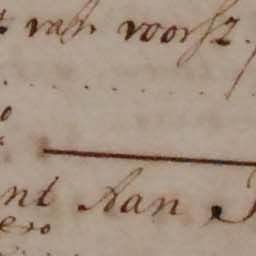 t van voorsz.
nt Aan
ero